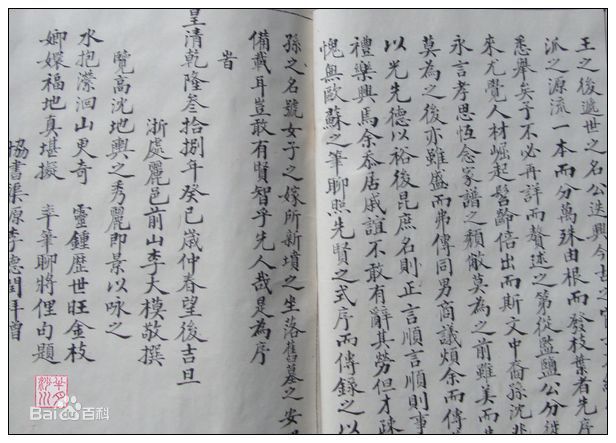 王之後遞世之名公迭興今古
派之源流一本而分萬殊由根而發枝葉者先序
悉舉矣予不必再詳而贅述之第從監鹽公分迷
來尤覺人材崛起髫齡倍出而斯文中裔孫沈兆
永言孝思恆念家譜之頹敝莫為之前雖美而
莫為之後亦雖盛而弗傳同男商議煩余而傳
以光先德以裕後昆庶名則正言順言順則事
禮樂興焉余忝居戚誼不敢有辭其勞但才疎
愧無歐蘇之筆聊照先賢之式序而傳錄之以
孫之名號女子之嫁所新墳之坐落舊墓之安
備載耳豈敢有賢智乎先人哉是為序
旹
皇清乾隆叁拾捌年癸巳歲仲春望後吉旦
浙處麗邑前山李大模敬撰
覽高沈地輿之秀麗即景以咏之
水抱瀠洄山更奇 靈鍾歷世旺金枝
嫏嬛福地真堪擬 率筆聊將俚句題
協書渠源李德閏拜首
Bai百科